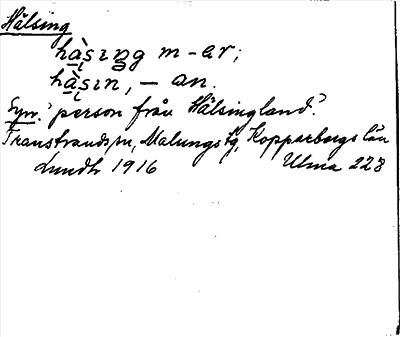 Hälsing
hà̱s̨ıŋg m -ar;
hà̱s̨ın, - an.
Syn. 'person från Hälsingland'.
Transtrands sn, Malungs tg, Kopparbergs län
Lundh 1916 Ulma 228